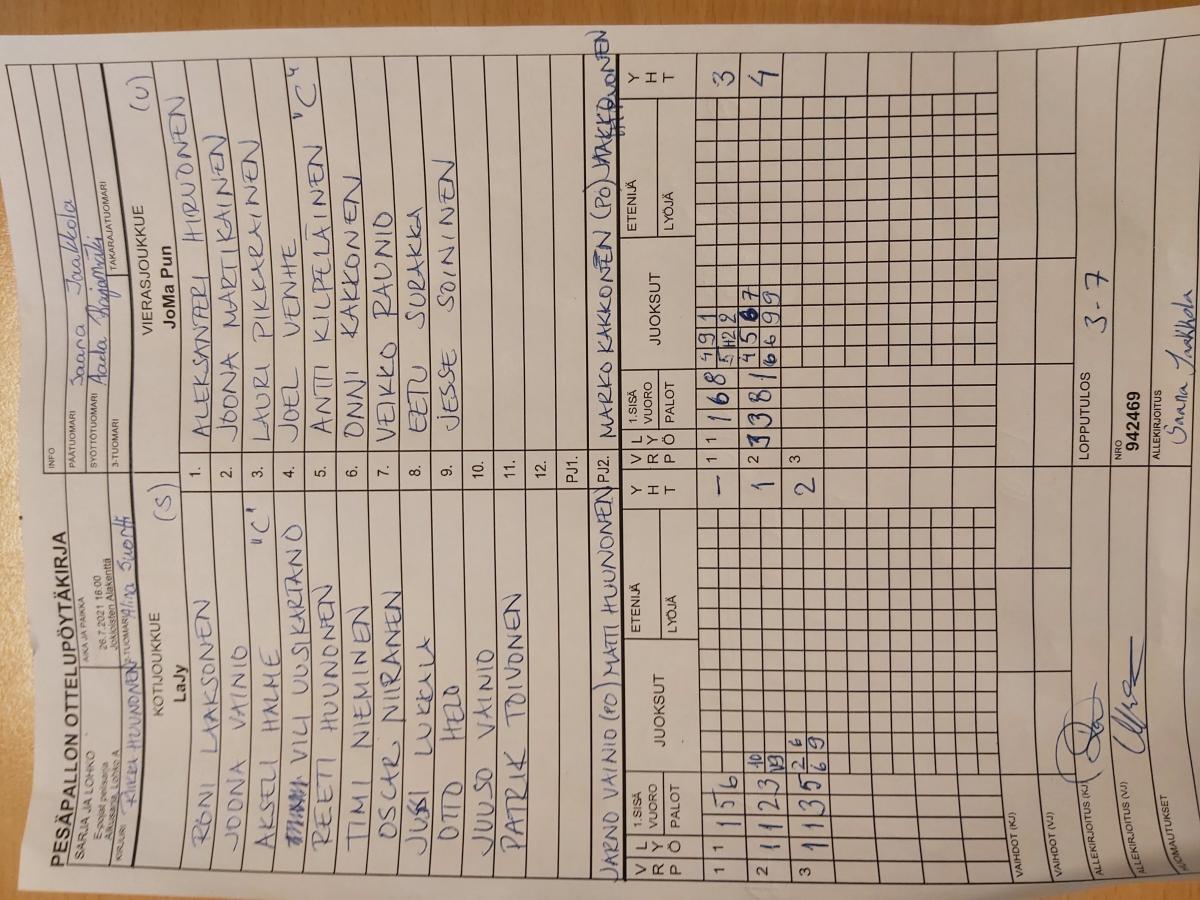 PESÄPALLON OTTELUPÖYTÄKIRJA
SARJA JA LOHKO
E-pojat perjsarja
Alkusarja, Lohko A
AIKA JA PAIKKA
26.7.2021 16:00
Jokioisten Alakenttä
INFO
PÄÄTUOMARI Saana Jaakkola
SYÖTTÖTUOMARI Aada Rajamäki
3-TUOMARI
TAKARAJATUOMARI
KIRJURI Riikka HUUNONEN
2-TUOMARI Alina Suortti
KOTIJOUKKUE (S)
LaJy
VIERASJOUKKUE (U)
JoMa Pun
RONI LAAKSONEN 1. ALEKSANTERI HIRVONEN
JOONA VAINIO 2. JOONA MARTIKAINEN
AKSELI HALME "C" 3. LAURI PIKKARAINEN
VILI UUSKARTANO 4. JOEL VENHE
REETI HUUNONEN 5. ANTTI KILPELÄINEN "C"
TIMI NIEMINEN 6. ONNI KAKKONEN
OSCAR NIIRANEN 7. VEIKKO RAUNIO
JUSSI LUKELA 8. EETU SURAKKA
OTTO HELO 9. JESSE SOININEN
JUUSO VAINIO 10.
PATRIK TOIVONEN 11.
12.
PJ1.
JARNO VAINIO (PO) MATTI HUUNONEN PJ2. MARKO KAKKONEN (PO)
V R L Y Ö 1.SISÄ VUORO PALOT JUOKSUT ETENIJÄ LYÖJÄ Y H T
V R L Y Ö 1.SISÄ VUORO PALOT JUOKSUT ETENIJÄ LYÖJÄ Y H T
1 1 1 5 6 – 1 1 1 6 8 4 9 1 3
5 +2 2
2 1 1 2 3 10 1 2 3 3 8 1 4 5 6 7 4
6 6 9 9
3 1 1 3 5 2 6 2 3
6 9
VAIHDOT (KJ)
VAIHDOT (VJ)
ALLEKIRJOITUS (KJ)
LOPPUTULOS 3-7
ALLEKIRJOITUS (VJ)
NRO
942469
HUOMAUTUKSET
ALLEKIRJOITUS
Saana Jaakkola